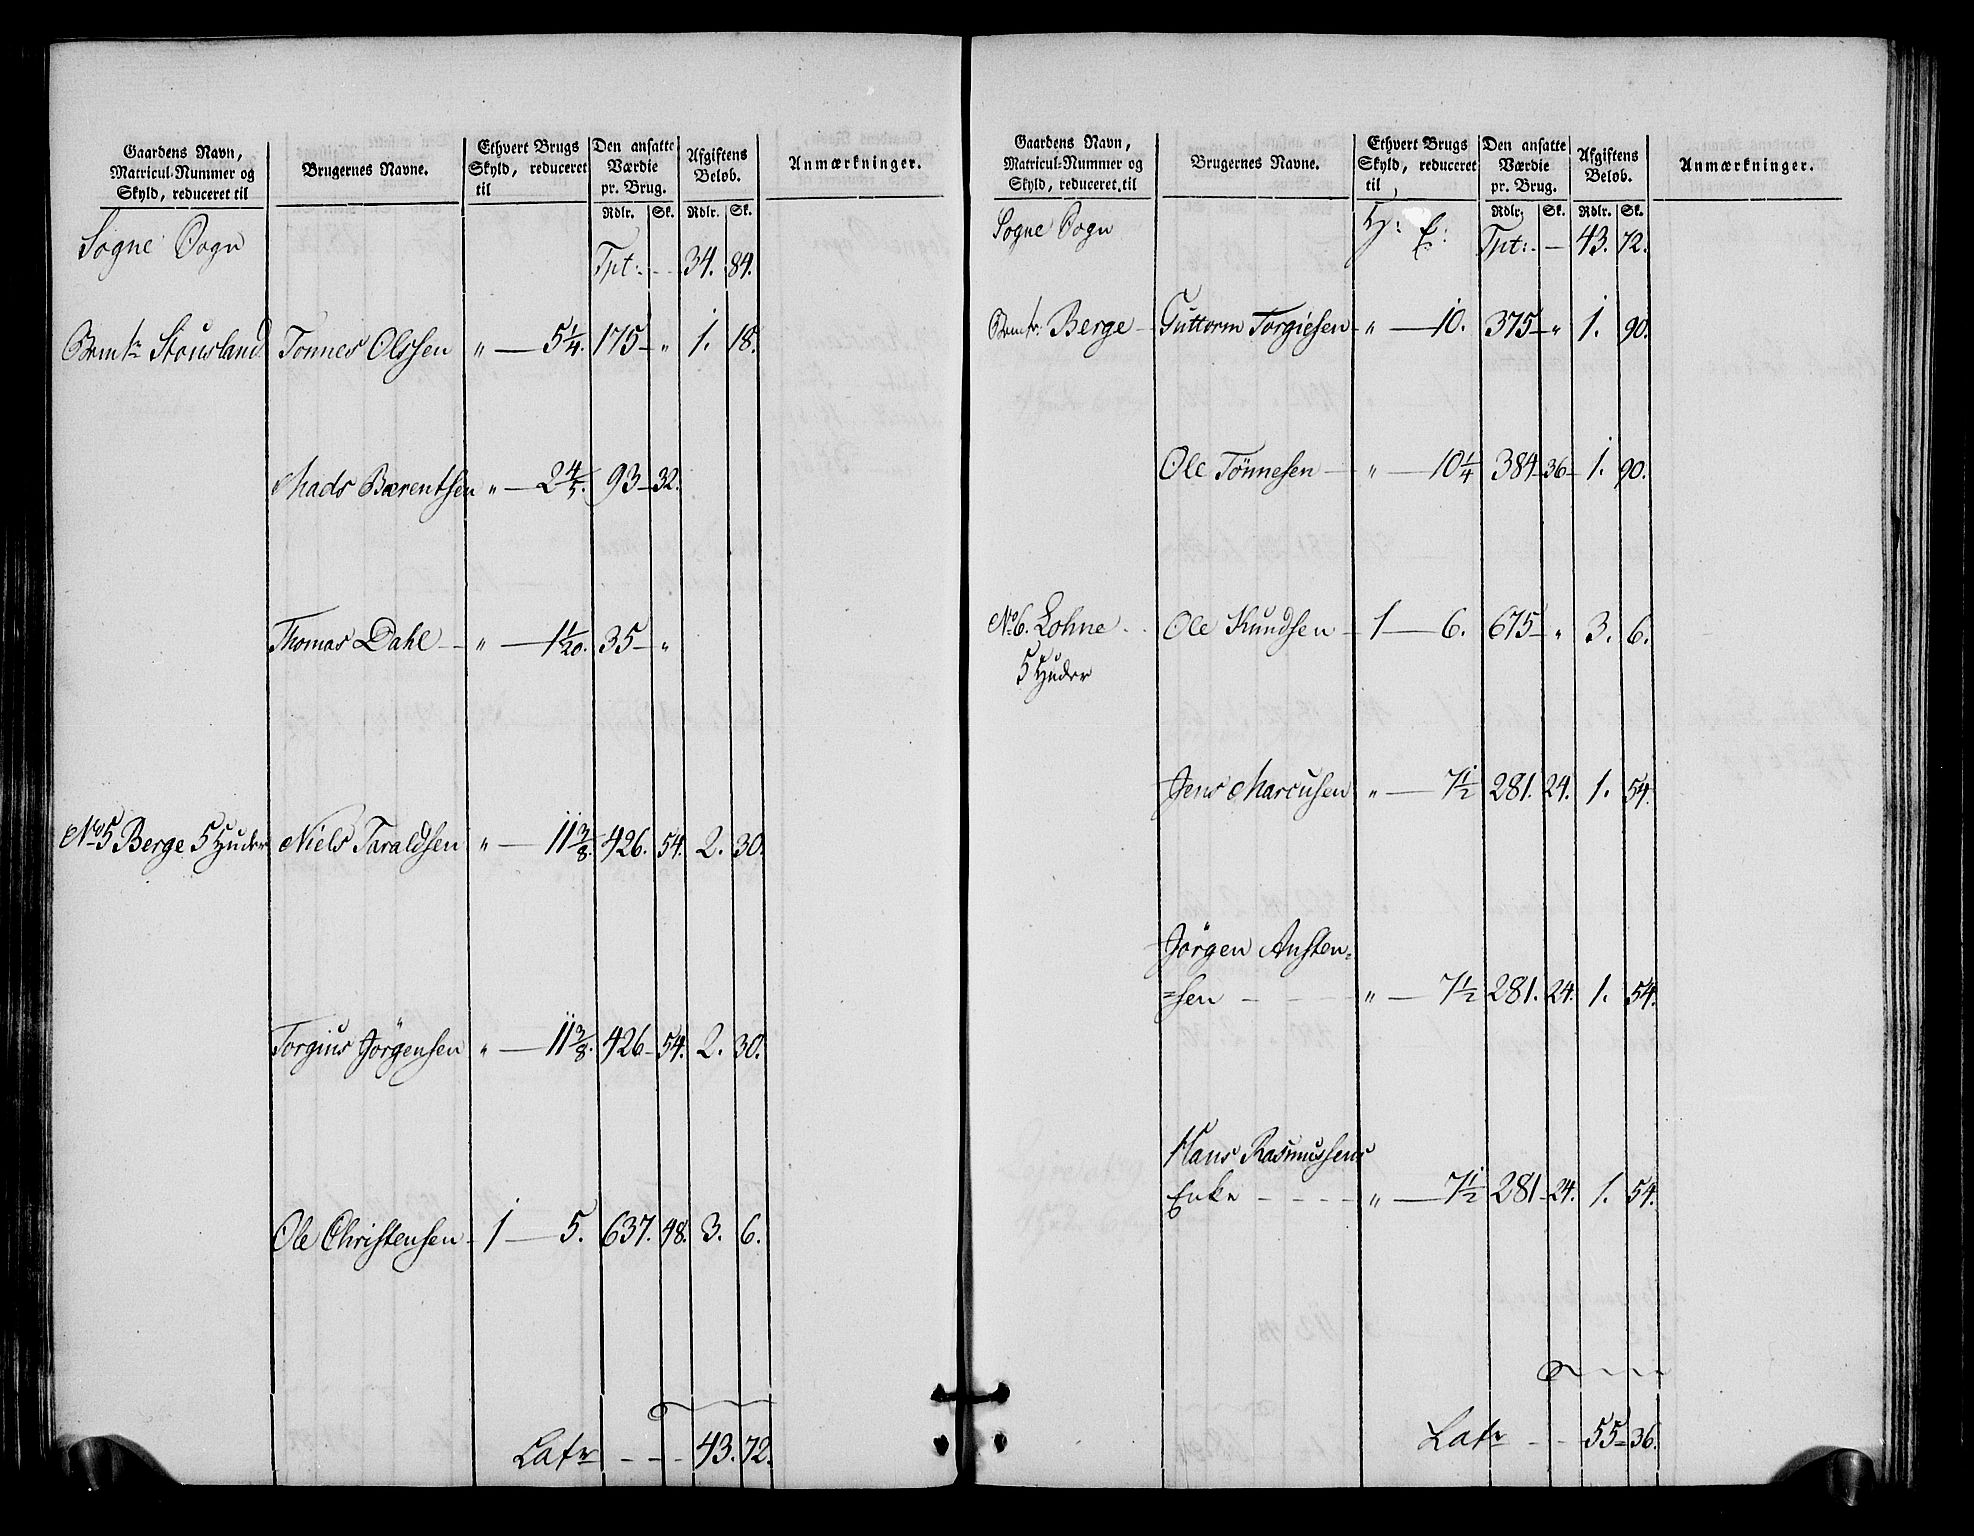 Gaardens Navn, Matricul-Nummer og Skyld, reduceret til | Brugernes Navne. | Ethvert Brugs Skyld, reduceret til | Den ansatte Værdie pr. Brug. Rdlr. Sk. | Afgiftens Beløb. Rdlr. Sk. | Anmærkninger.
Sogne Sogn
Tpt: - - 34. 84.
Stousland Tønnes Olssen „ — 5 1/4. 175 — „ 1. 18.
Mads Bærentsen „ — 2 4/5. 93 — 32.
Thomas Dahl — „ — 1 1/20. 35 — „
No 5 Berge 5 Huder Niels Taraldsen „ — 11 3/8. 426. 54. 2. 30.
Torgius Jørgensen „ — 11 3/8. 426 — 54. 2. 30.
Ole Christensen — 1 — 5. 637. 48. 3. 6.
Latr - - - 43. 72.
Gaardens Navn, Matricul-Nummer og Skyld, reduceret til | Brugernes Navne. | Ethvert Brugs Skyld, reduceret til | Den ansatte Værdie pr. Brug. Rdlr. Sk. | Afgiftens Beløb. Rdlr. Sk. | Anmærkninger.
Sogne Sogn H: Tpt: - — 43. 72.
Berge — Guttorm Torgiesen — „ — 10. 375 — „ 1. 90.
Ole Tønnesen — „ — 10 1/4 384 — 36 — 1. 90.
No 6. Lohne - - Ole Knudsen — 1 — 6. 675 — „ 3. 6.
5 Huder
Jens Marcusen „ — 7 1/2 281. 24. 1. 54.
Jørgen Austen=
=sen — - - „ — 7 1/2 281. 24. 1. 54.
Hans Rasmussens
Enke - - - - „ — 7 1/2 281 — 24. 1. 54.
Latr - - 55 — 36.